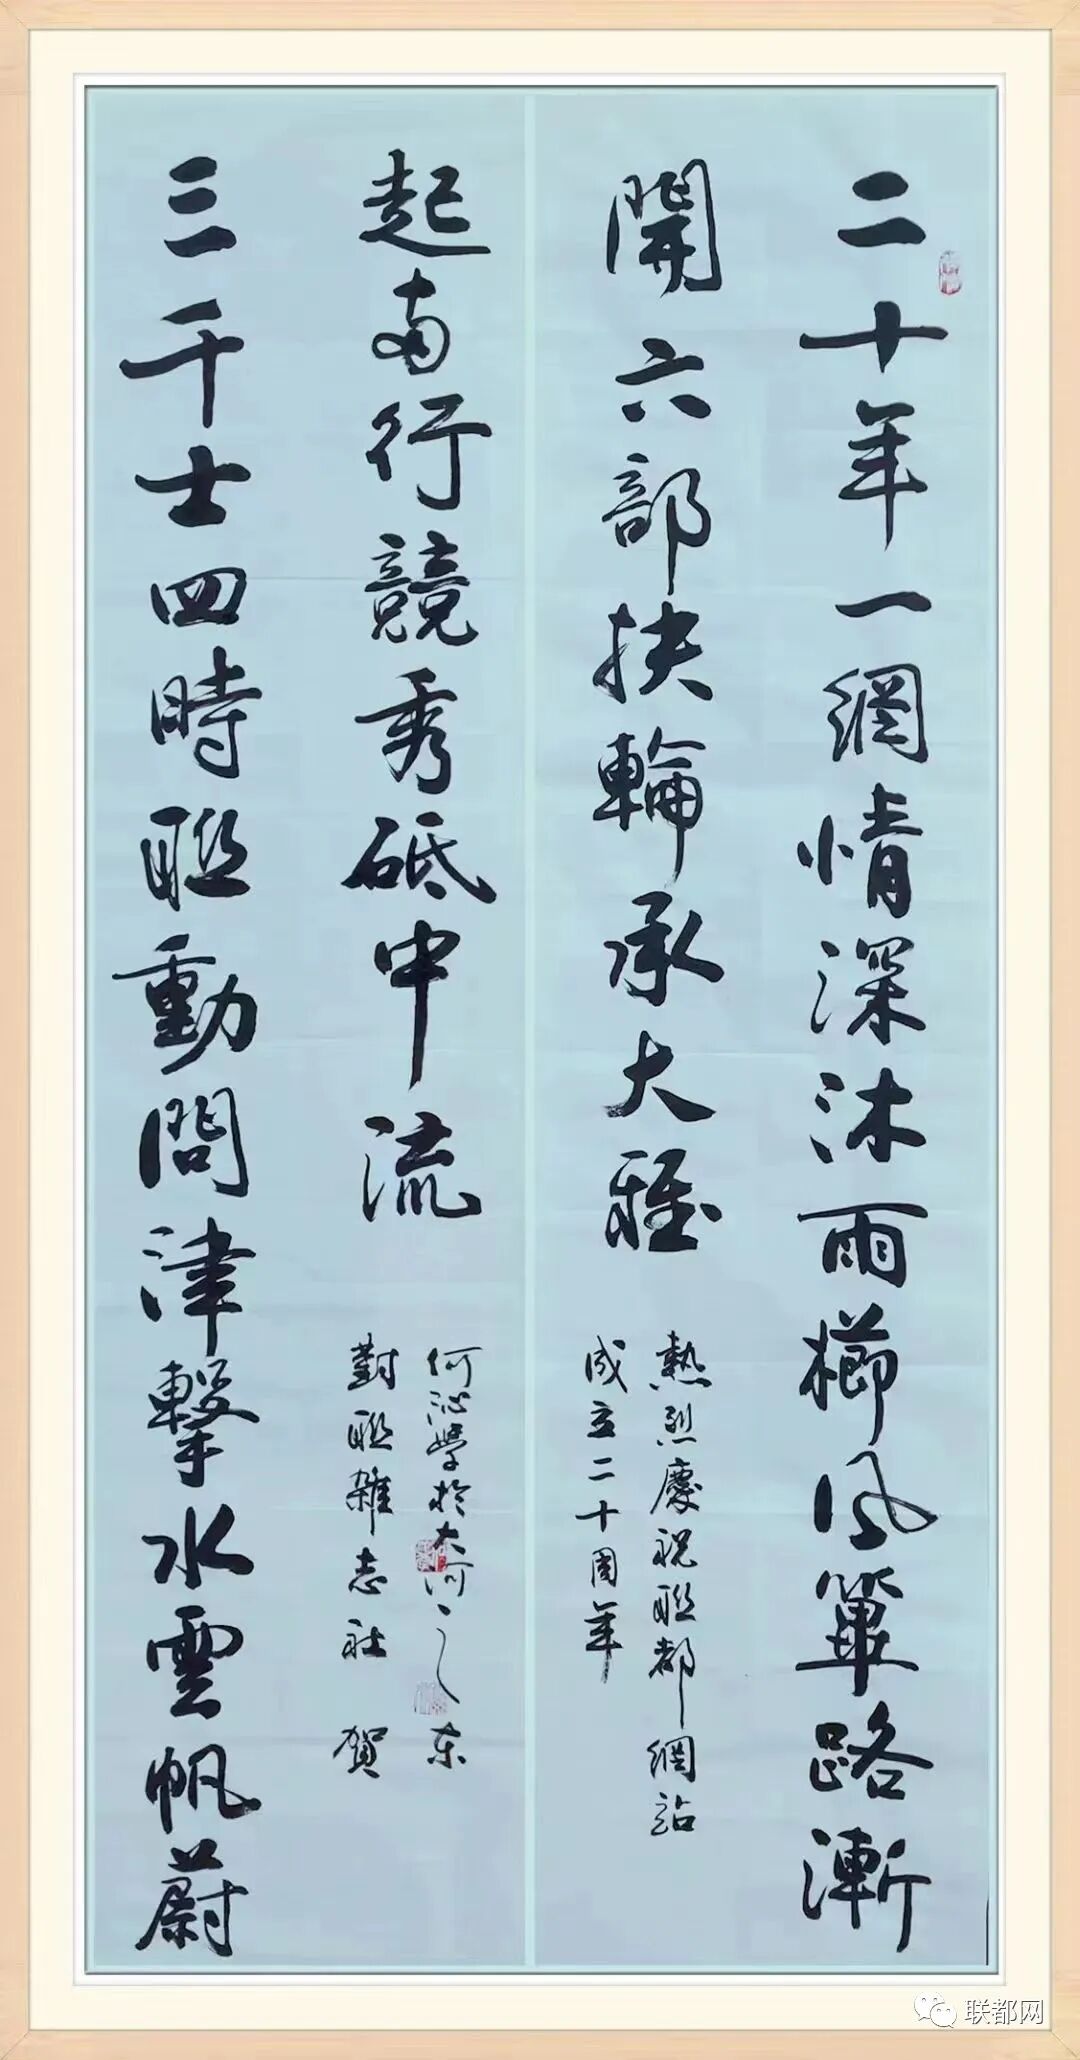 二十年一網情深沐雨櫛風篳路漸
開六部扶輪承大雅
熱烈慶祝聯都網站
成立二十周年
三千士四時聯動問津擊水雲帆蔚
起兩行競秀砥中流
對聯雜志社 賀
何沁學於大河之东
联都网